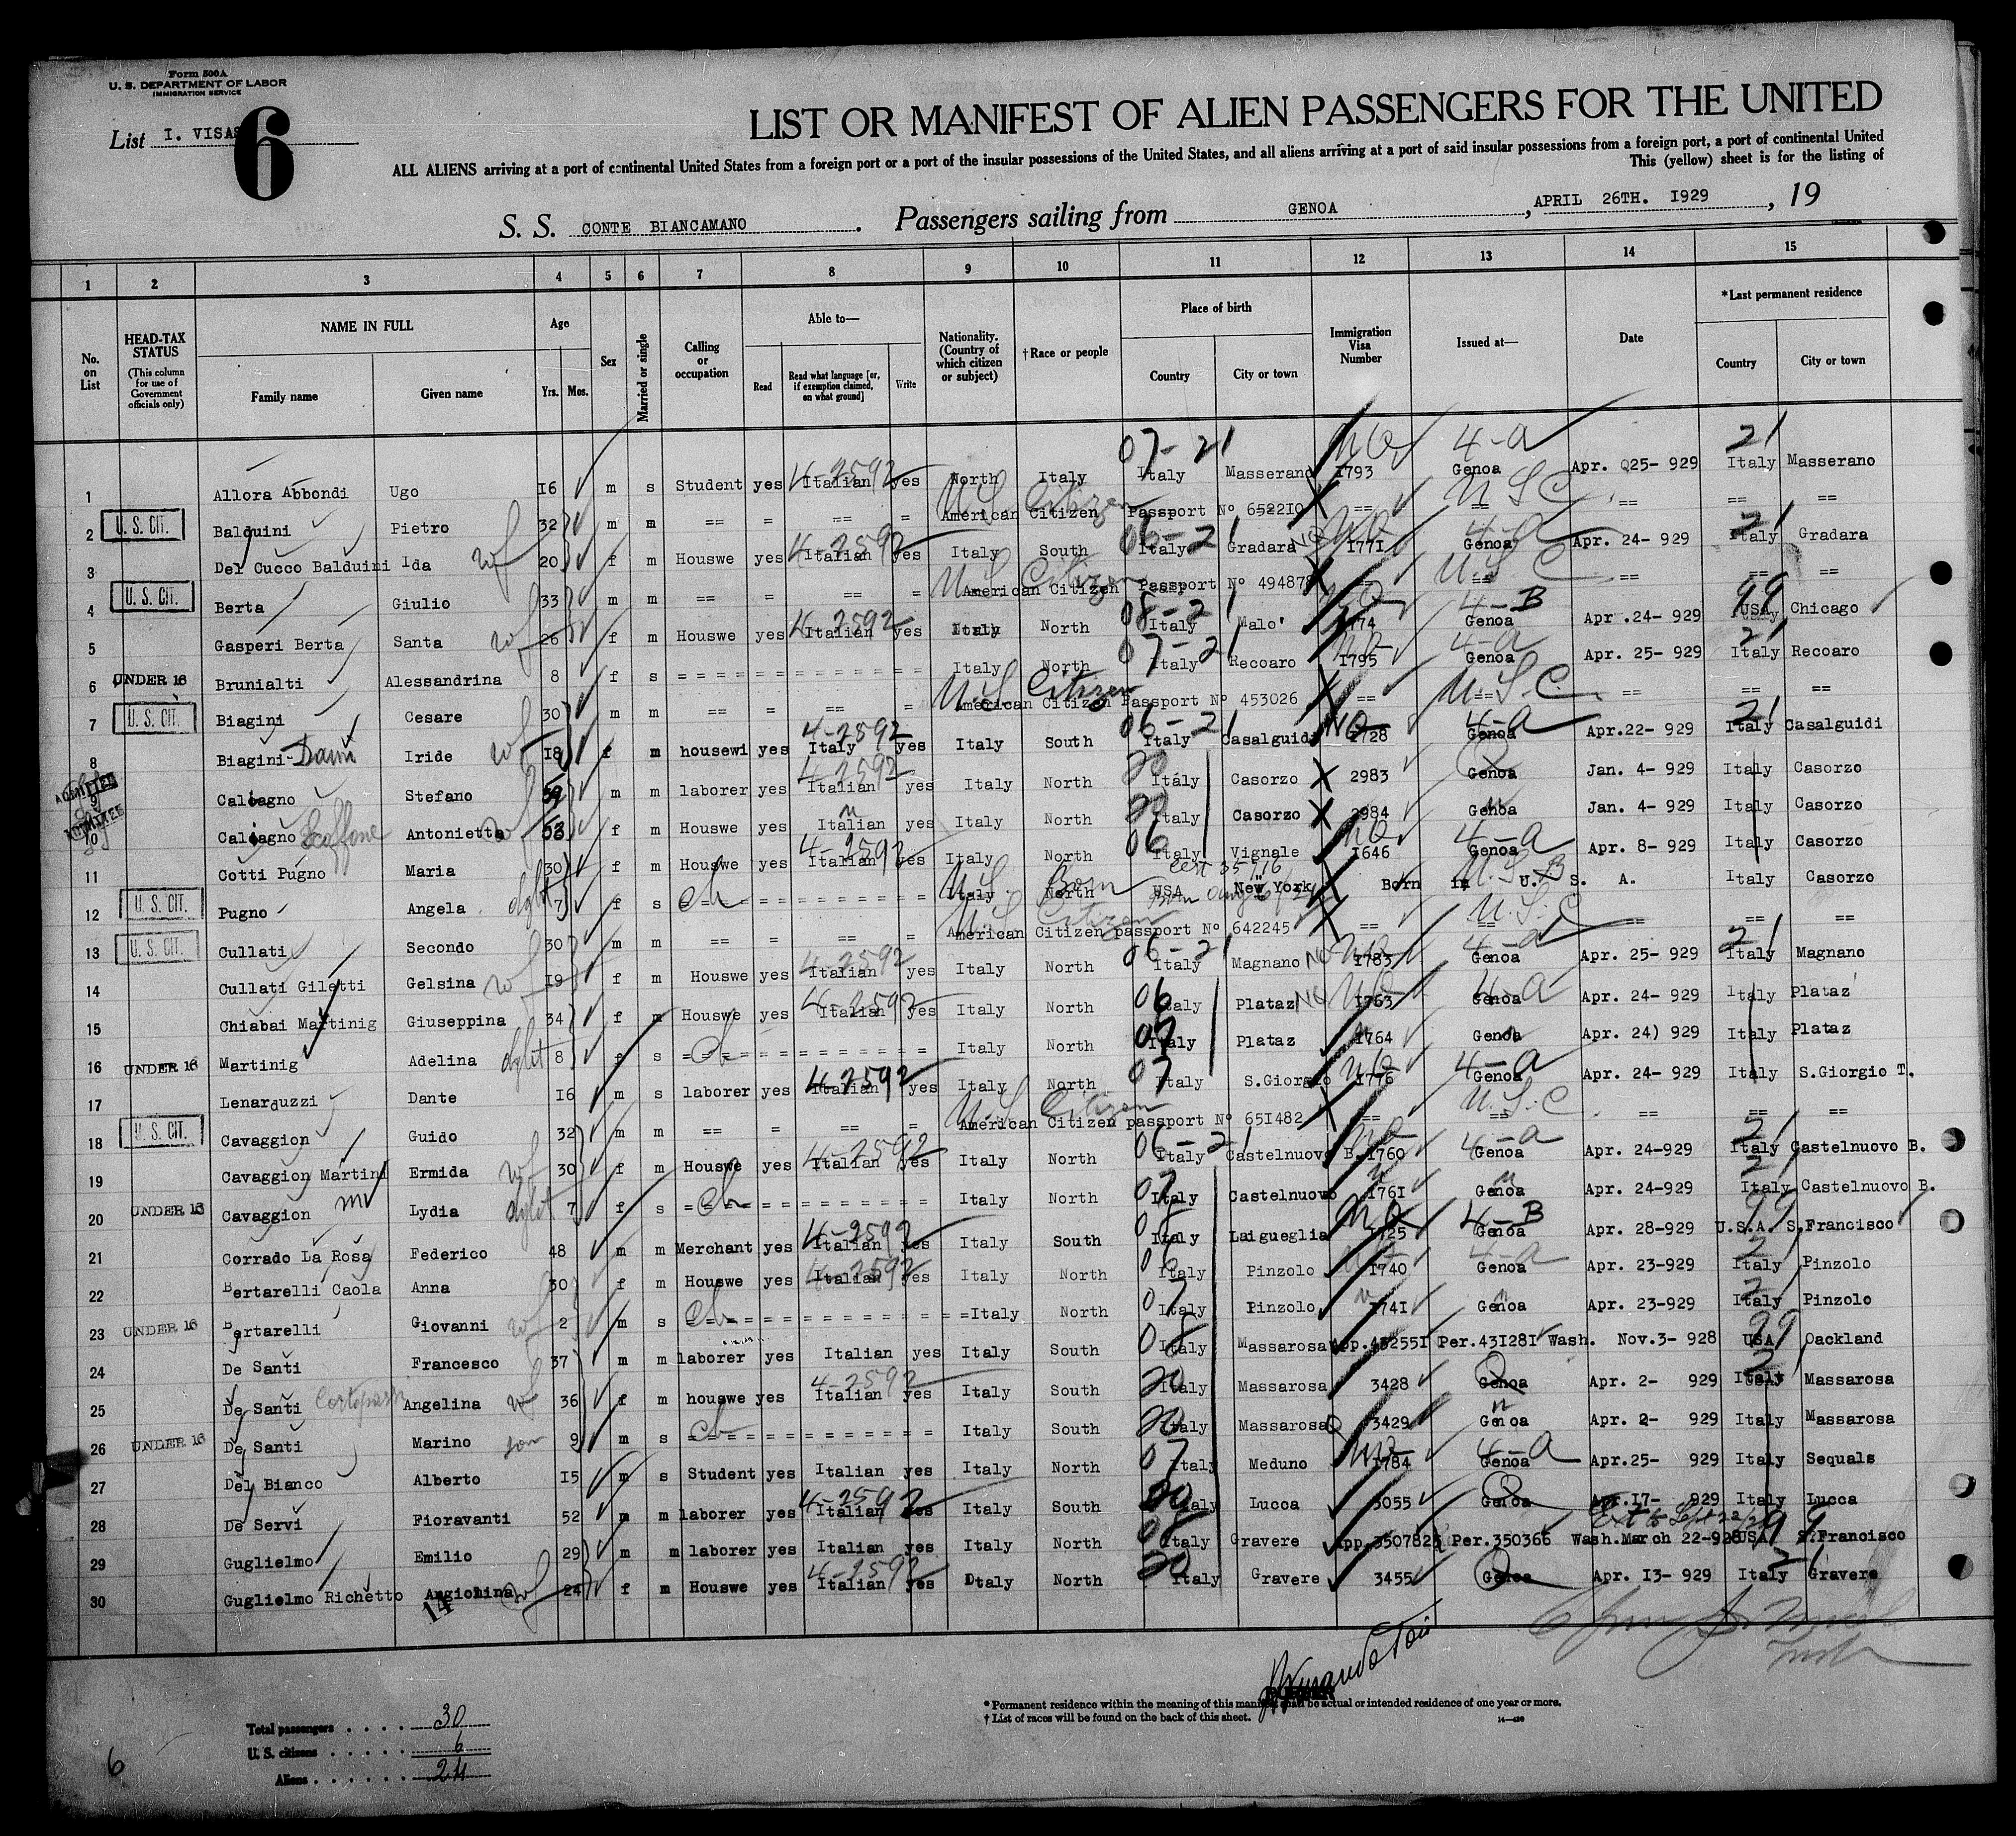 Form 500A
U. S. DEPARTMENT OF LABOR
IMMIGRATION SERVICE
List I. VISAS
6
LIST OR MANIFEST OF ALIEN PASSENGERS FOR THE UNITED
ALL ALIENS arriving at a port of continental United States from a foreign port or a port of the insular possessions of the United States, and all aliens arriving at a port of said insular possessions from a foreign port, a port of continental United
This (yellow) sheet is for the listing of
S. S. CONTE BIANCAMANO . Passengers sailing from GENOA , APRIL 26TH. I929 , 19
1 2 3 4 5 6 7 8 9 10 11 12 13 14 15
No. on List
HEAD-TAX STATUS (This column for use of Government officials only)
NAME IN FULL Family name Given name
Age Yrs. Mos.
Sex
Married or single
Calling or occupation
Able to— Read Read what language [or, if exemption claimed, on what ground] Write
Nationality. (Country of which citizen or subject)
† Race or people
Place of birth Country City or town
Immigration Visa Number
Issued at—
Date
* Last permanent residence Country City or town
1 Allora Abbondi Ugo I6 m s Student yes Italian 4-2592 yes North Italy 07-21 Italy Masserano I793 Genoa 4-a Apr. 25- 929 21 Italy Masserano
2 U. S. CIT. Balduini Pietro 32 m m == = == = American Citizen US Citizen Passport Nº 6522I0 == U S C == == ==
3 Del Cucco Balduini Ida wf 20 f m Houswe yes Italian 4-2592 yes Italy South 06-21 Italy Gradara I77I Genoa 4-a Apr. 24- 929 21 Italy Gradara
4 U. S. CIT. Berta Giulio 33 m m == = == = American Citizen US Citizen Passport Nº 494878 == U.S C == == ==
5 Gasperi Berta Santa wf 26 f m Houswe yes Italian 4-2592 yes Italy North 08-21 Italy Malo' I774 Genoa 4-B Apr .24- 929 99 USA Chicago
6 UNDER 16 Brunialti Alessandrina 8 f s = = = = = = = = = = = = Italy North 07-21 Italy Recoaro I795 Genoa 4-a Apr. 25- 929 21 Italy Recoaro
7 U. S. CIT. Biagini Cesare 30 m m == = == = American Citizen US Citizen Passport Nº 453026 == U.S.C. == == ==
8 Biagini Iride wf I8 f m housewi yes Italy 4-2592 yes Italy South 06-21 Italy Casalguidi I728 Genoa 4-a Apr.22- 929 21 Italy Casalguidi
9 ADMITTED Calcagno Stefano m m laborer yes Italian 4-2592 yes Italy North 20 Italy Casorzo 2983 Genoa Q Jan. 4- 929 Italy Casorzo
10 ADMITTED Calcagno Antonietta wf f m Houswe yes Italian yes Italy North 20 Italy Casorzo 2984 Genoa Jan. 4- 929 Italy Casorzo
11 Cotti Pugno Maria 30 f m Houswe yes Italian 4-2592 yes Italy North 06 Italy Vignale I646 Genoa 4-a Apr. 8- 929 Italy Casorzo
12 U. S. CIT. Pugno Angela dght 7 f s = = = = = = = = = = = = Italy US Born North USA New York Born in U. S. A. Italy Casorzo
13 U. S. CIT. Cullati Secondo 30 m m == = == = American Citizen US Citizen passport Nº 642245 == U.S.C == == ==
14 Cullati Giletti Gelsina wf I9 f m Houswe yes Italian 4-2592 yes Italy North 06-21 Italy Magnano I783 Genoa 4-a Apr. 25- 929 21 Italy Magnano
15 Chiabai Martinig Giuseppina 34 f m Houswe yes Italian 4-2592 yes Italy North 06 Italy Plataz I763 Genoa 4-a Apr. 24- 929 Italy Plataz
16 UNDER 16 Martinig Adelina dght 8 f s = = = = = = = = = = = = Italy North 07 Italy Plataz I764 Genoa Apr. 24) 929 Italy Plataz
17 Lenarduzzi Dante I6 m s laborer yes Italian 4-2592 yes Italy North 07 Italy S.Giorgio I776 Genoa 4-a Apr. 24- 929 Italy S.Giorgio T.
18 U. S. CIT. Cavaggion Guido 32 m m == = == = American Citizen US Citizen passport Nº 65I482 == U.S.C == == ==
19 Cavaggion Martini Ermida wf 30 f m Houswe yes Italian 4-2592 yes Italy North 06-21 Italy Castelnuovo B. I760 Genoa 4-a Apr. 24-929 21 Italy Castelnuovo B.
20 UNDER 16 Cavaggion Lydia dght 7 f s = = = = = = = = = = = = Italy North 07 Italy Castelnuovo I76I Genoa Apr. 24-929 Italy Castelnuovo B.
21 Corrado La Rosa Federico 48 m m Merchant yes Italian 4-2592 yes Italy South 08 Italy Laigueglia I725 Genoa 4-B Apr. 28-929 99 U.S.A. S.Francisco
22 Bertarelli Caola Anna 30 f m Houswe yes Italian 4-2592 yes Italy North 06 Italy Pinzolo I740 Genoa 4-a Apr. 23-929 21 Italy Pinzolo
23 UNDER 16 Bertarelli Giovanni 2 m s = = = = = = = = = = = = Italy North 07 Italy Pinzolo I74I Genoa Apr. 23-929 Italy Pinzolo
24 De Santi Francesco 37 m m laborer yes Italian yes Italy South 08 Italy Massarosa App.432551 Per.43I28I Wash. Nov.3- 928 99 USA Oackland
25 De Santi Angelina wf 36 f m houswe yes Italian 4-2592 yes Italy South 20 Italy Massarosa 3428 Genoa Q Apr. 2- 929 21 Italy Massarosa
26 UNDER 16 De Santi Marino son 9 m s = = = = = = = = = = = = Italy South 20 Italy Massarosa 3429 Genoa Apr. 2- 929 Italy Massarosa
27 Del Bianco Alberto I5 m s Student yes Italian yes Italy North 07 Italy Meduno I784 Genoa 4-a Apr.25- 929 Italy Sequals
28 De Servi Fioravanti 52 m m laborer yes Italian 4-2592 yes Italy South 20 Italy Lucca 3055 Genoa Q Apr.I7- 929 Italy Lucca
29 Guglielmo Emilio 29 m m laborer yes Italian yes Italy North 08 Italy Gravere App.350782 Per.350366 Wash.March 22-928 USA 99 S.Francisco
30 Guglielmo Richetto Angiolina wf 24 f m Houswe yes Italian 4-2592 yes Italy North 20 Italy Gravere 3455 Genoa Q Apr. I3- 929 21 Italy Gravere
14
* Permanent residence within the meaning of this manifest shall be actual or intended residence of one year or more.
† List of races will be found on the back of this sheet.
Total passengers . . . . 30
U. S. citizens . . . . . 6
Aliens . . . . . . 24
6